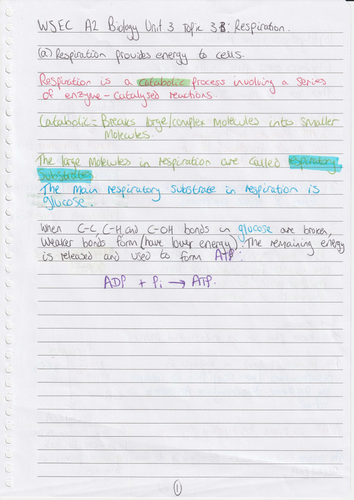 WJEC A2 Biology Unit 3 Topic 3: Respiration.
(a) Respiration provides energy to cells.
Respiration is a catabolic process involving a series
of enzyme-catalysed reactions.
Catabolic = Breaks large/complex molecules into smaller
molecules
The large molecules in respiration are called respiratory
substrates
The main respiratory substrate in respiration is
glucose.
When C-C, C-H and C-OH bonds in glucose are broken,
weaker bonds form (have lower energy). The remaining energy
is released and used to form ATP:
ADP + Pi → ATP.
1